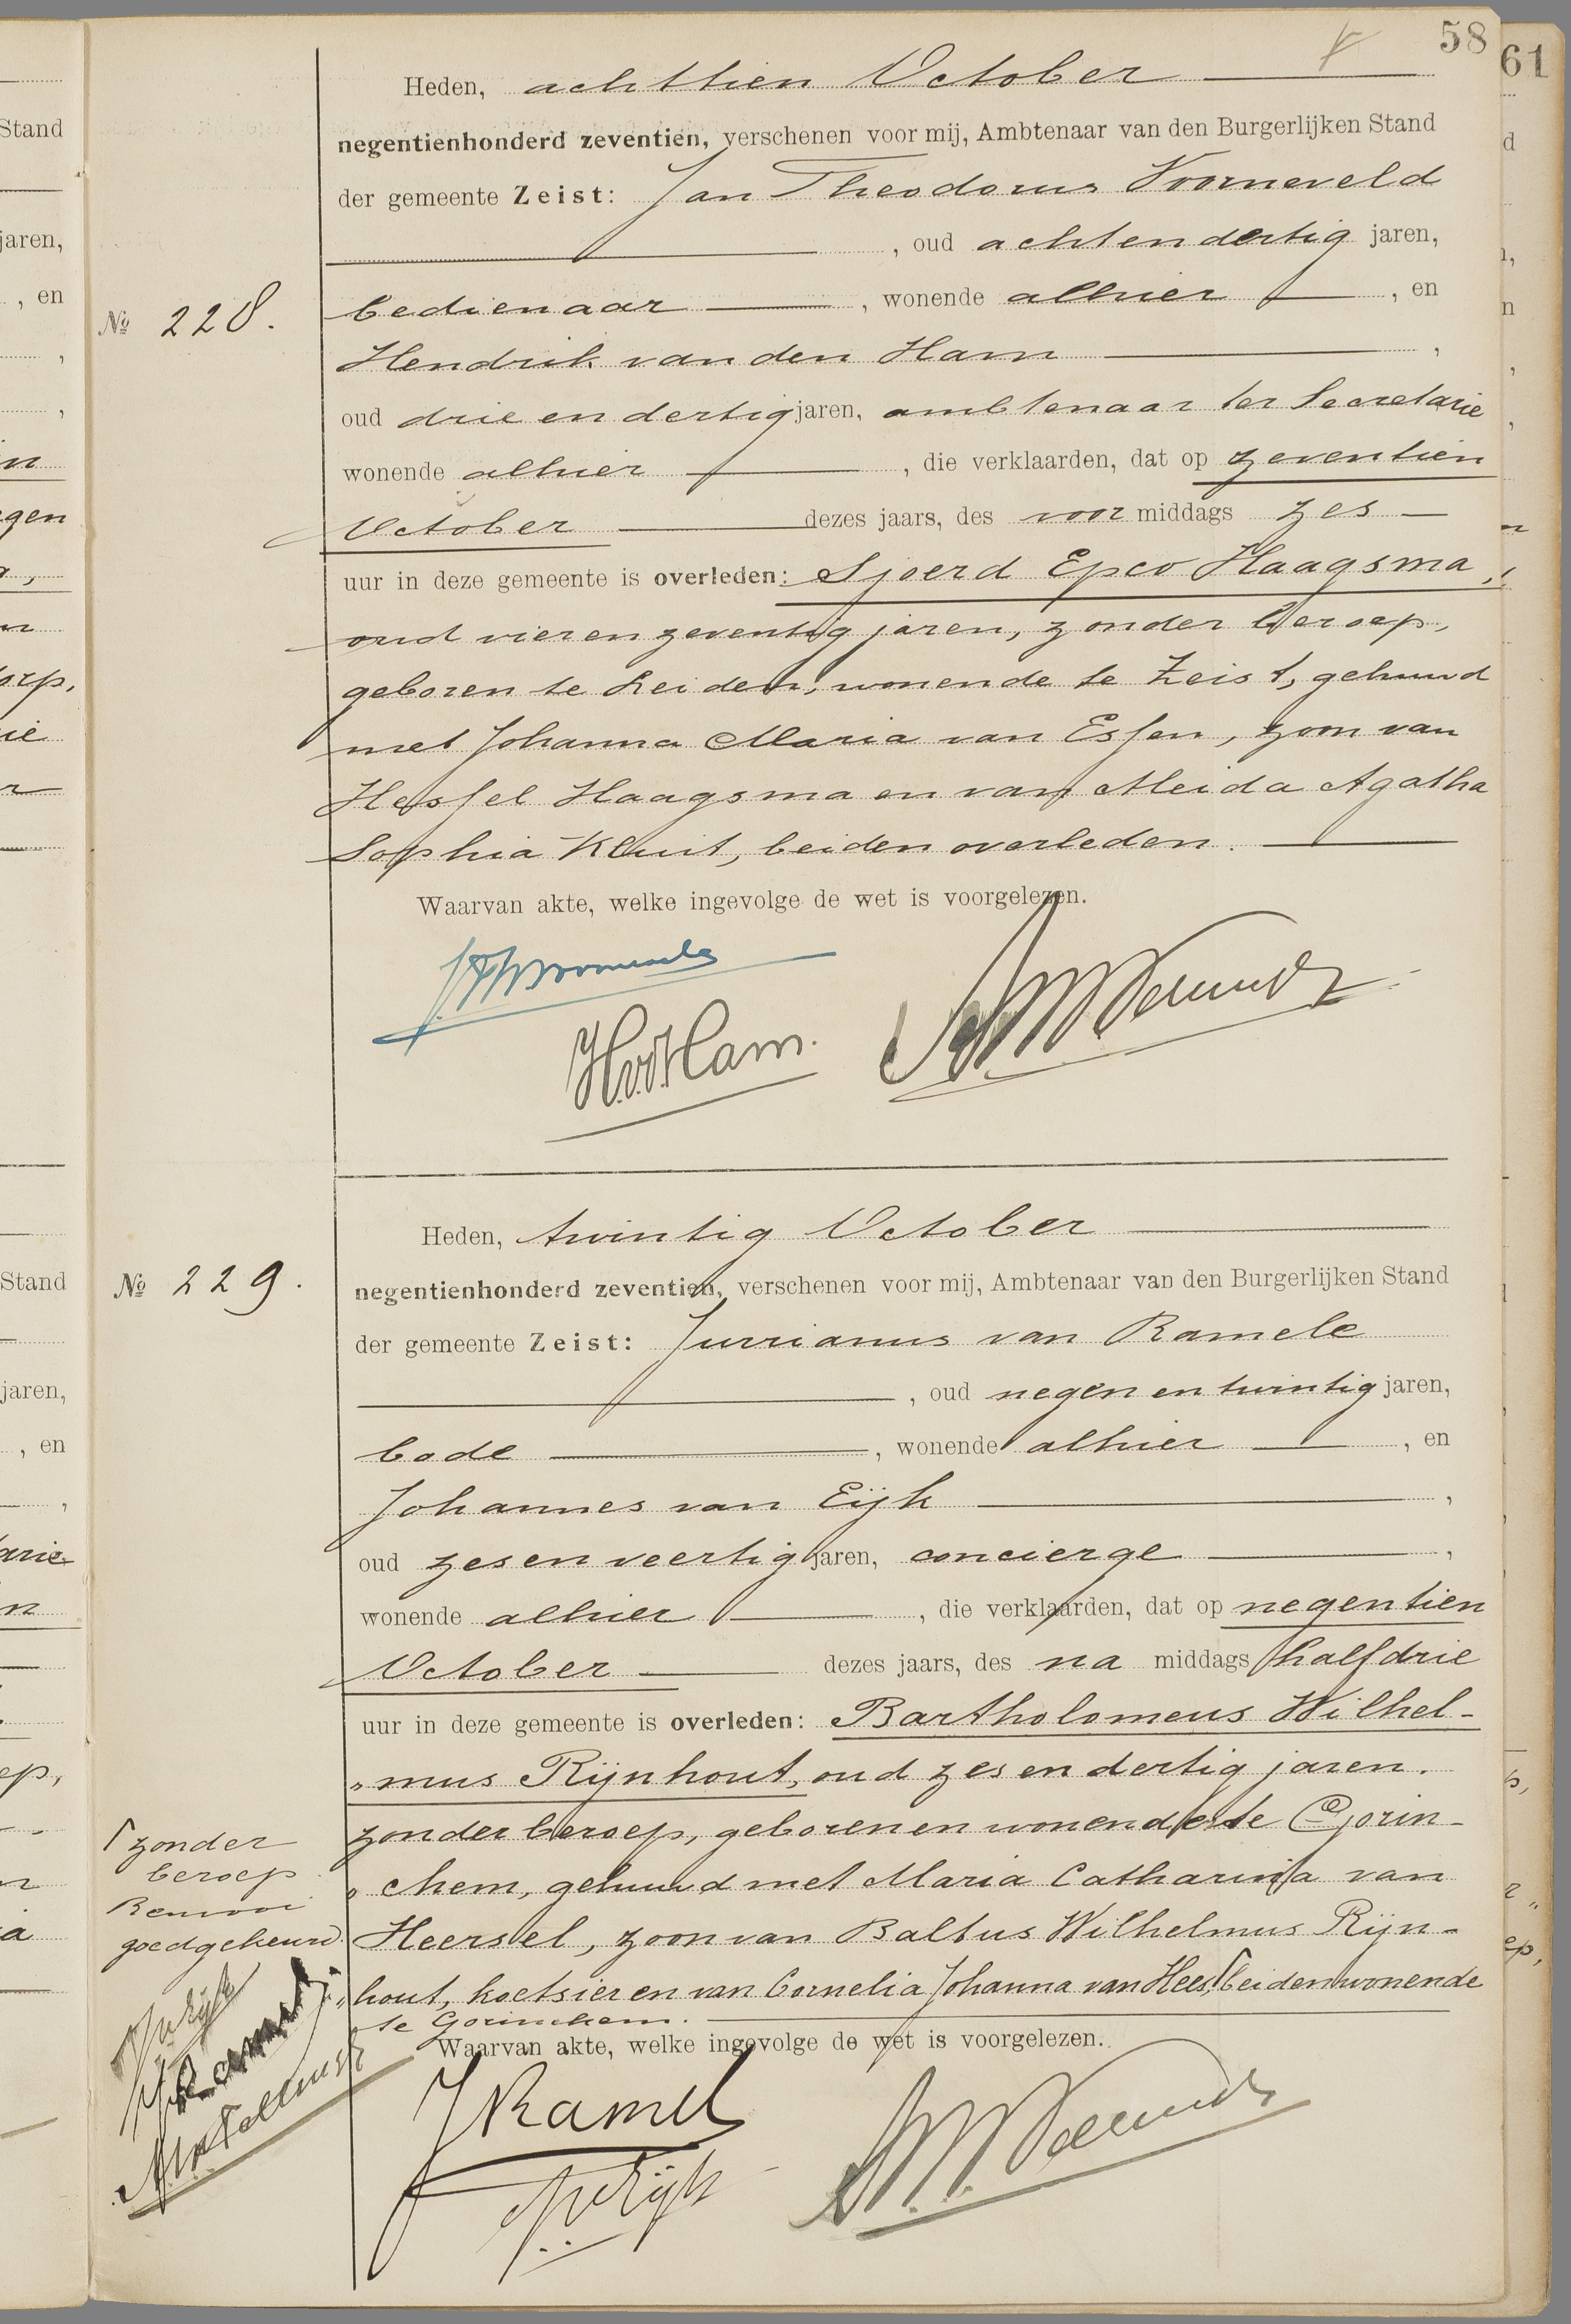 58
61
Heden, achttien October
negentienhonderd zeventien, verschenen voor mij, Ambtenaar van den Burgerlijken Stand
der gemeente Zeist: Jan Theodorus Voorneveld
, oud achtendertig jaren,
bedienaar , wonende alhier , en
№ 228.
Hendrik van den Ham ,
oud drie en dertig jaren, ambtenaar ter Secretarie
wonende alhier , die verklaarden, dat op zeventien
October dezes jaars, des voor middags zes
uur in deze gemeente is overleden: Sjoerd Epco Haagsma,
oud vier en zeventig jaren, zonder beroep,
geboren te Leiden, wonende te Zeist, gehuwd
met Johanna Maria van Essen, zoon van
Hessel Haagsma en van Aleida Agatha
Sophia Kluit, beiden overleden.
Waarvan akte, welke ingevolge de wet is voorgelezen.
H.v.d.Ham.
Heden, twintig October
№ 229.
negentienhonderd zeventien, verschenen voor mij, Ambtenaar van den Burgerlijken Stand
der gemeente Zeist: Jurrianus van Ramele
, oud negen en twintig jaren,
bode , wonende alhier , en
Johannes van Eijk ,
oud zes en veertig jaren, concierge ,
wonende alhier , die verklaarden, dat op negentien
October dezes jaars, des na middags half drie
uur in deze gemeente is overleden: Bartholomeus Wilhel-
„mus Rijnhout, oud zes en dertig jaren.
zonder beroep, geboren en wonende te Gorin-
„chem, gehuwd met Maria Catharina van
Heersel, zoon van Baltus Wilhelmus Rijn-
„hout, koetsier en van Cornelia Johanna van Hees,⌈beiden wonende
te Gorinchem.
⌈zonder
beroep
Renvooi
goedgekeurd.
Waarvan akte, welke ingevolge de wet is voorgelezen.
JvRamele
JvEijk